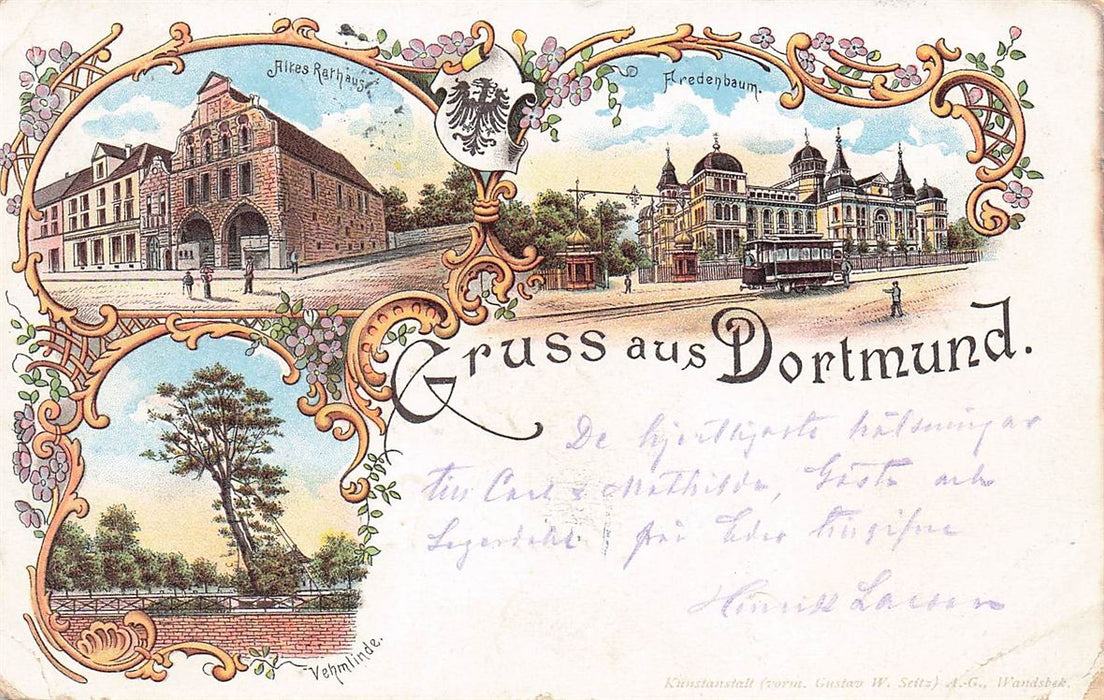 Altes Rathaus.
Fredenbaum.
Gruss aus Dortmund.
De hjertligaste hälsningar
till Carl & Mathilda, Gösta och
från Eder tillgifne
Henrik Larsson
Vehmlinde.
Kunstanstalt (vorm. Gustav W. Seitz) A.-G., Wandsbek.